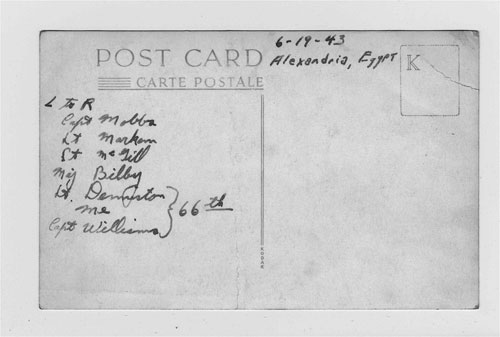 6-19-43
Alexandria, Egypt
POST CARD
CARTE POSTALE
K
L to R
Capt Mobbs
Lt Markam
Lt McGill
Maj Bilby
Lt. Denniston
me
Capt Williams
66th
KODAK